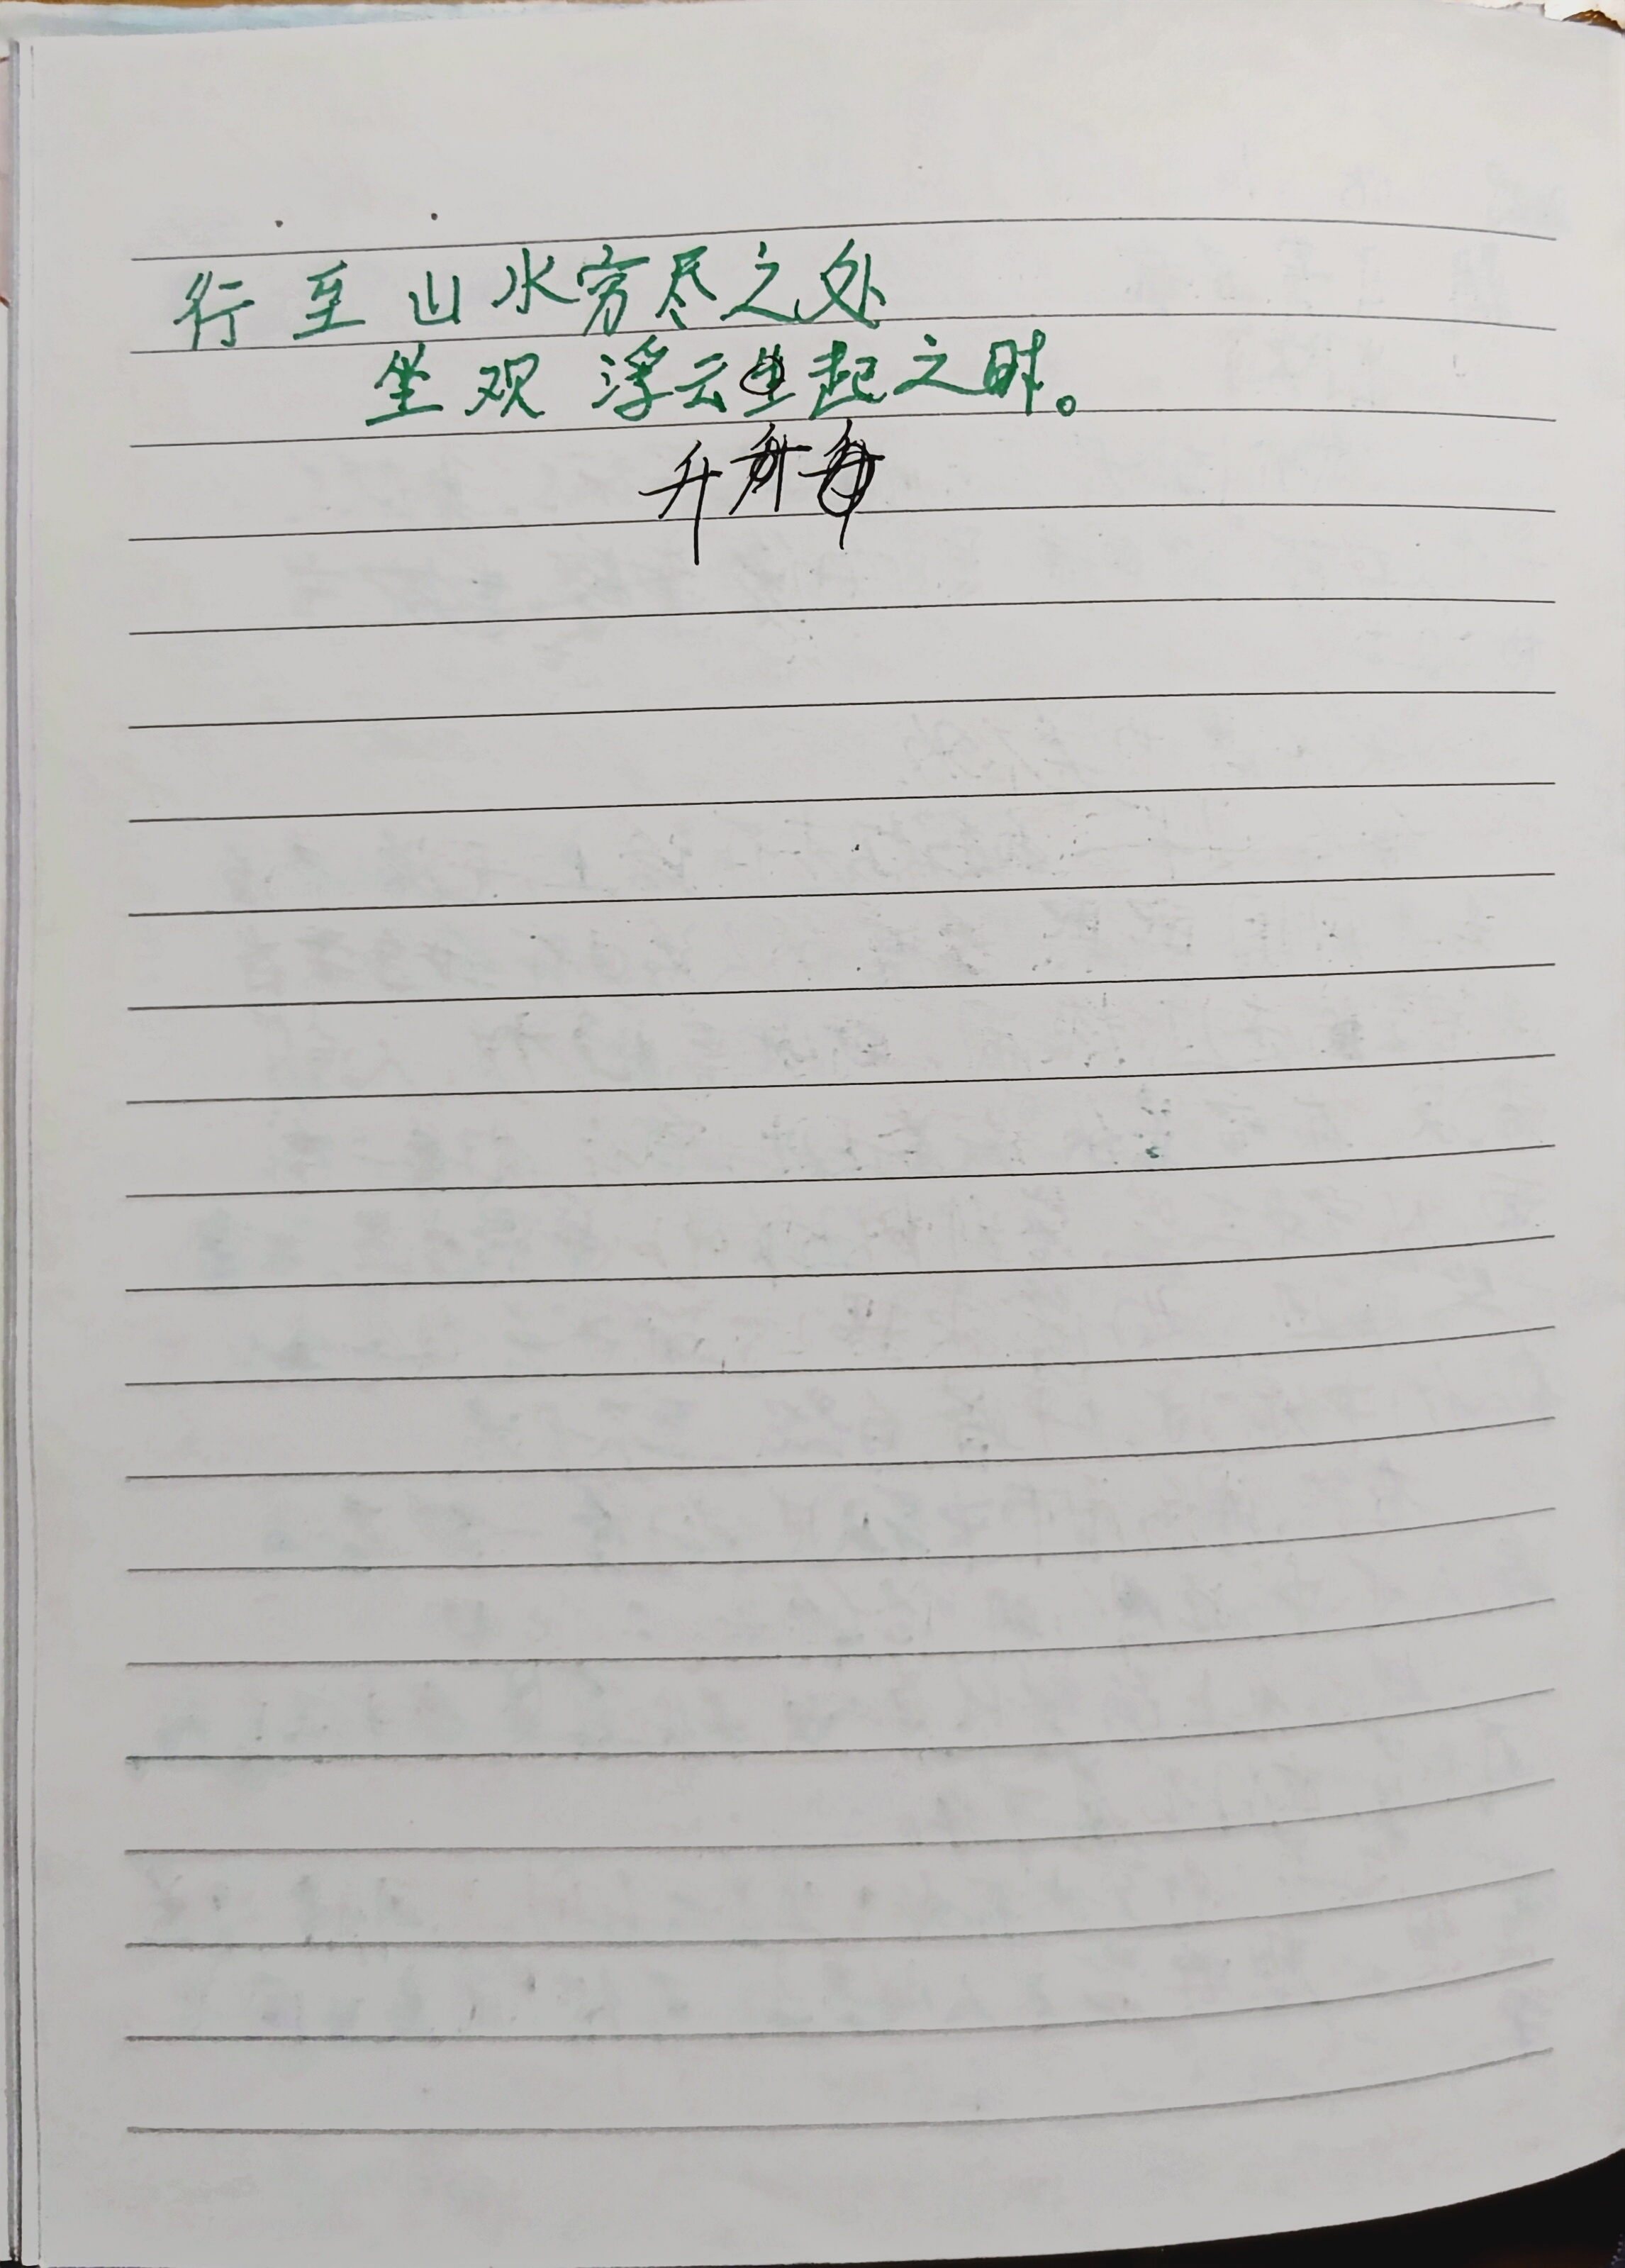 行至山水穷尽之处
坐观浮云生起之时。
升